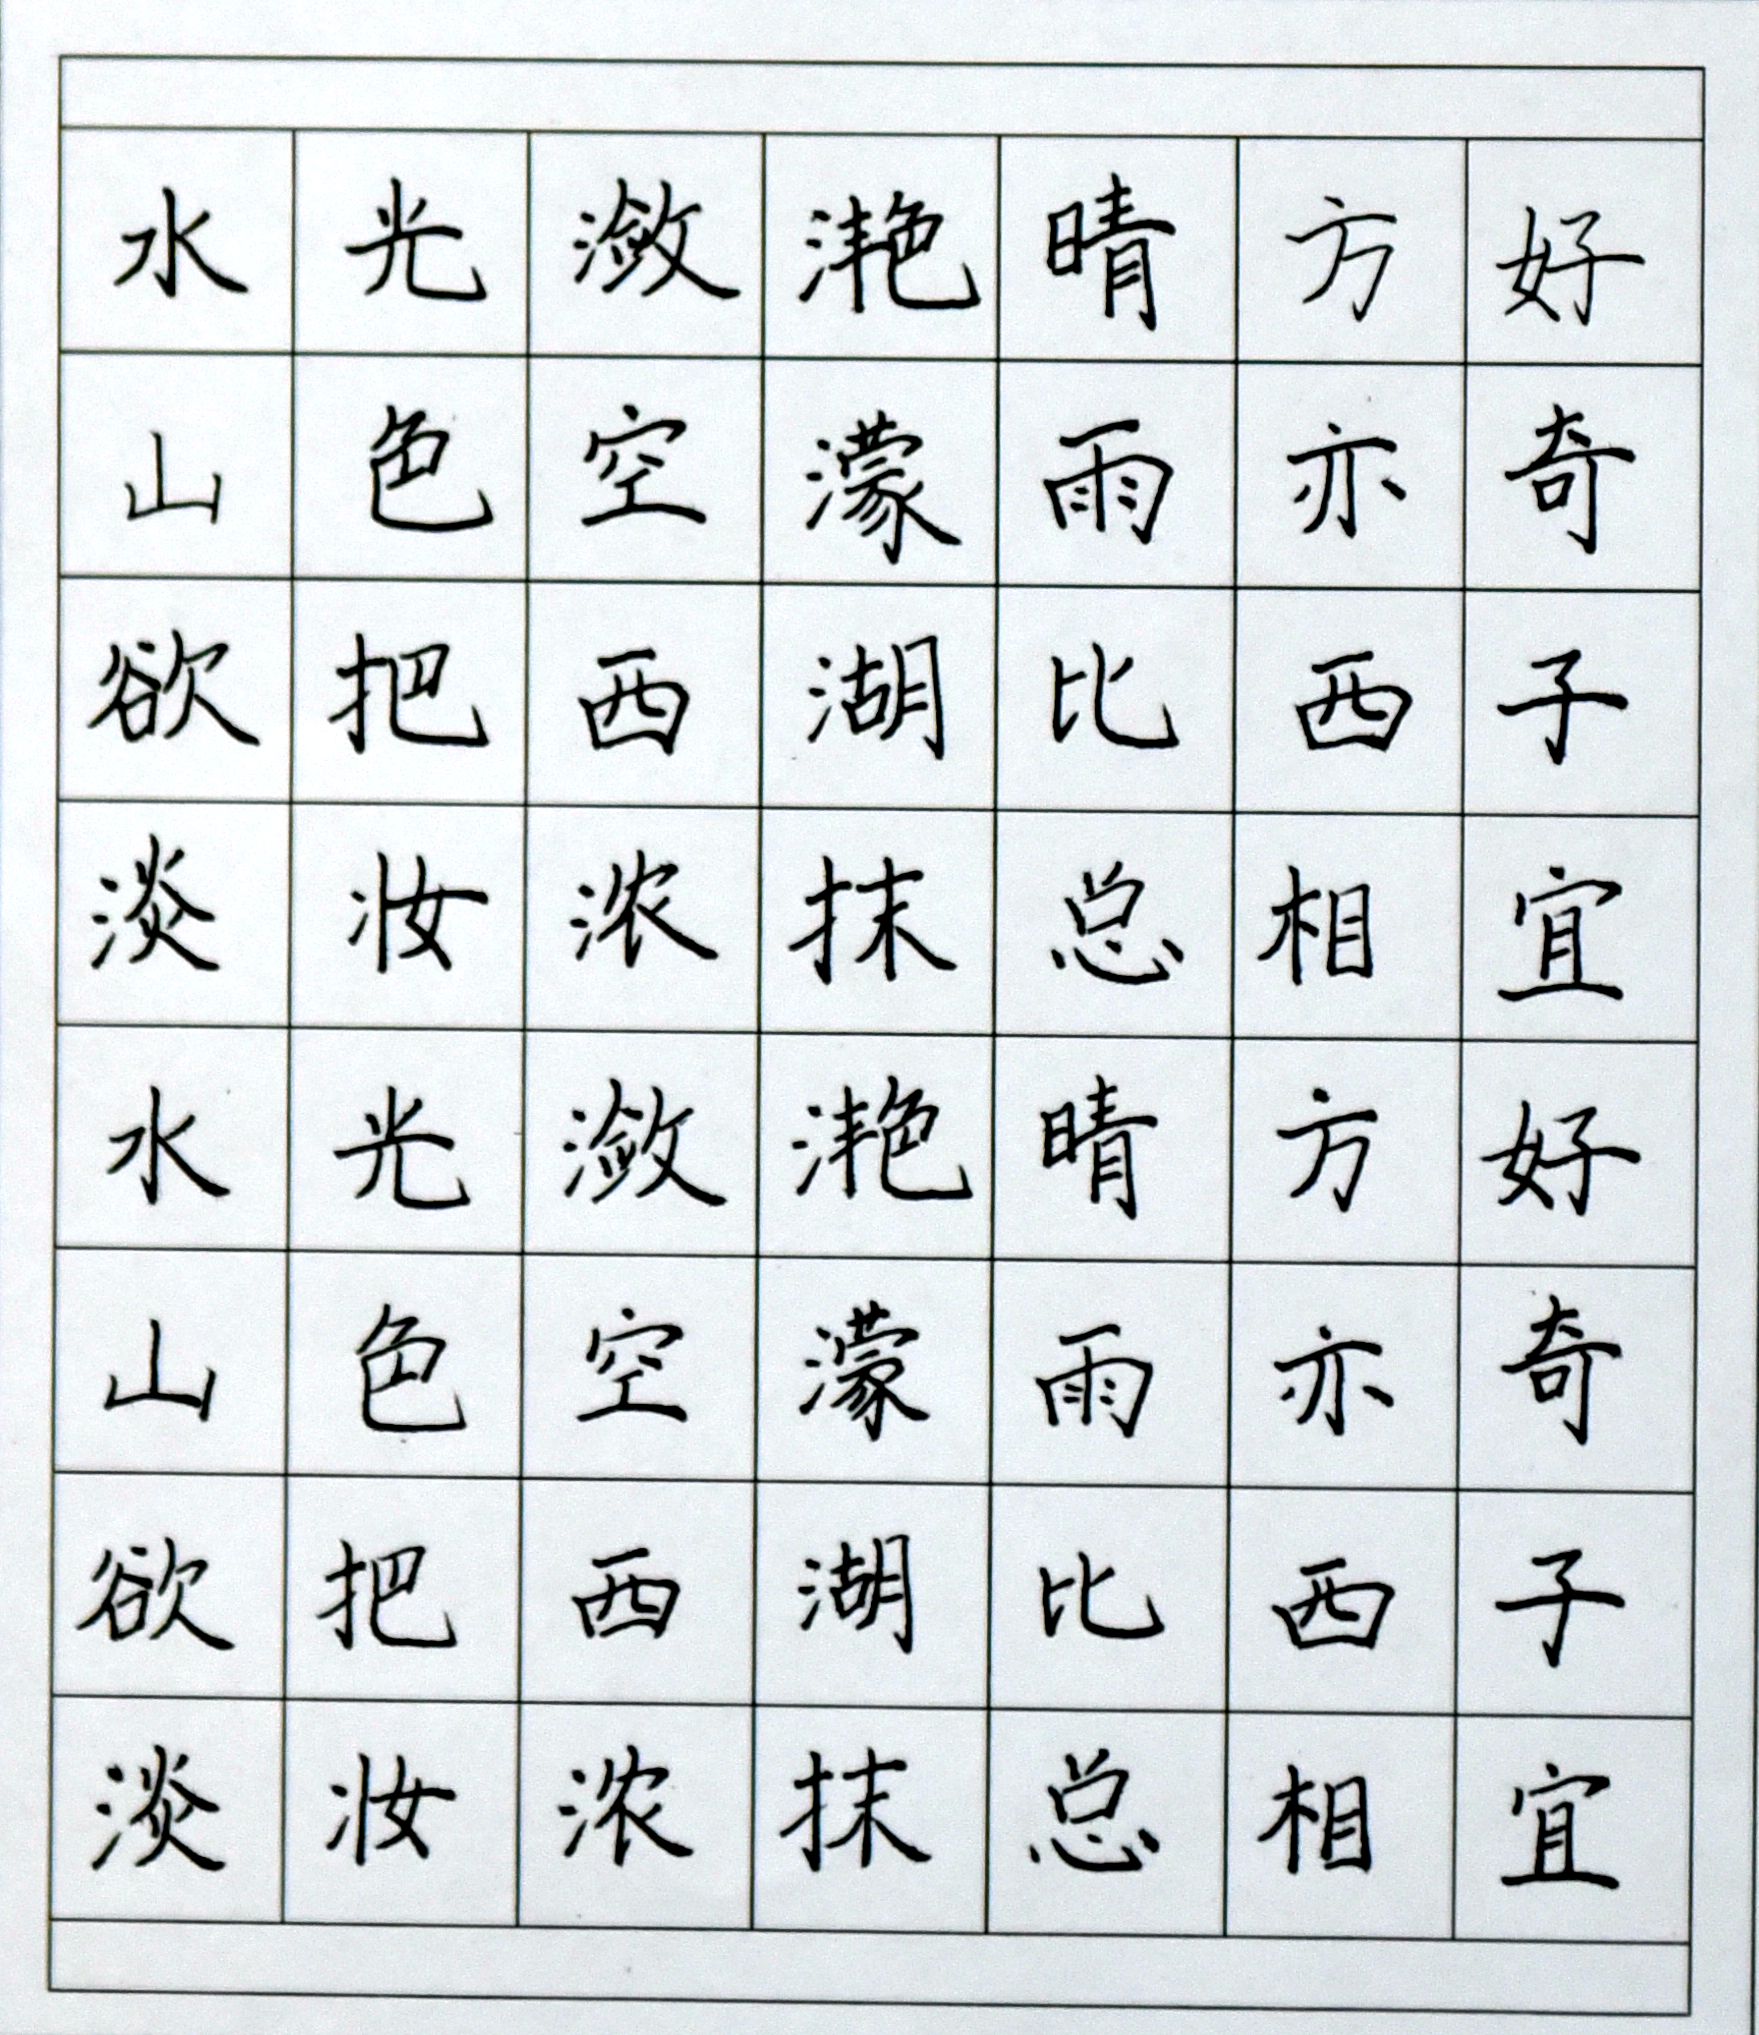 水光潋滟晴方好
山色空濛雨亦奇
欲把西湖比西子
淡妆浓抹总相宜
水光潋滟晴方好
山色空濛雨亦奇
欲把西湖比西子
淡妆浓抹总相宜